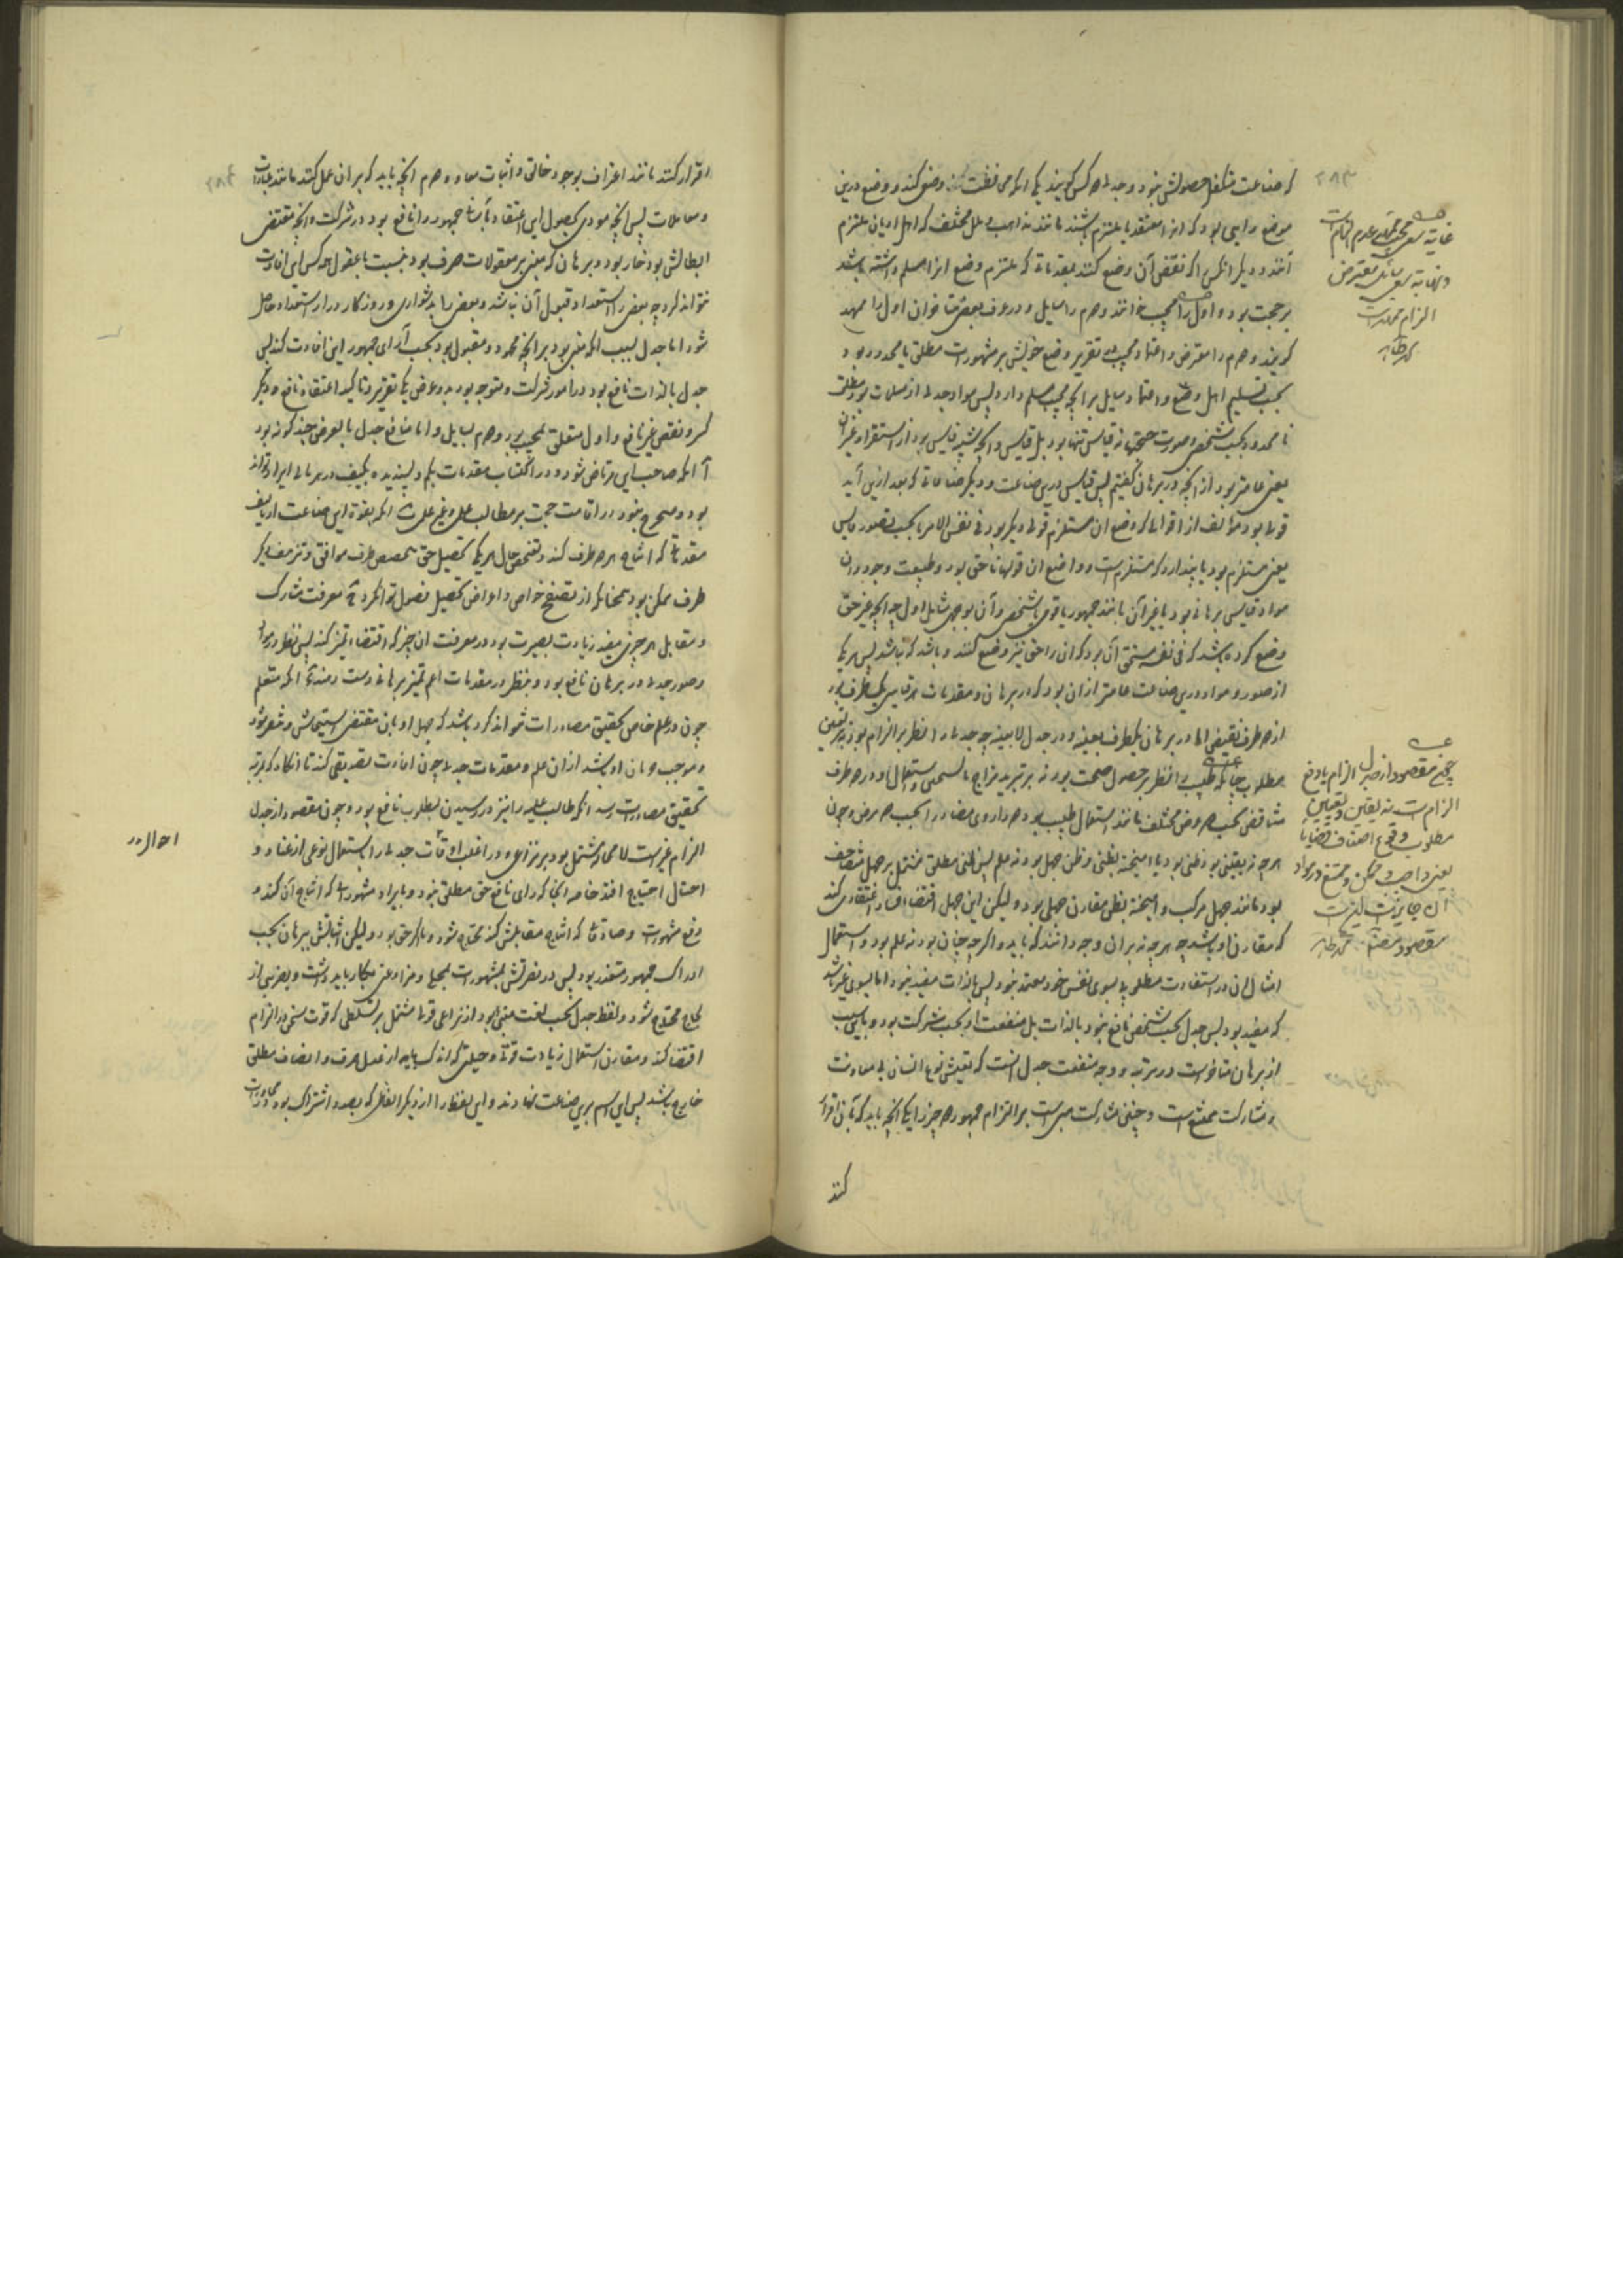 که صناعت متکفل حصولش نبود و جدلی دو کس را گویند یکی انکه محافظت وضعی کند و وضع درین
موضع رایی بود که انرا معتقد یا ملتزم باشند مانند مذاهب و ملل مختلف که اهل ادیان ملتزم
آنند و دیگر انکس را که نقض آن وضع کند بمقدماتی که ملتزم وضع انرا مسلم داشته باشد
بر حجت بود و اول را مجیب خوانند و دوم را سایل و در عرف بعضی متاخران اول را ممهد
گویند و دوم را معترض و اعتماد مجیب در تقریر وضع خویش بر مشهورات مطلق یا محدود بود
بحسب تسلیم اهل وضع و اعتماد سایل بر انچه مجیب مسلم دارد پس مواد جدلی از مسلمات بود مطلق
یا محدود بحسب شخصی و صورت حجتها نه قیاس تنها بود بل قیاس و انچه شبیه قیاس بود از استقرا و غیر ان
یعنی عامتر بود از انچه در برهان گفتیم پس قیاس درین صناعت و دیگر صناعات که بعد ازین آید
قولی بود مؤلف از اقوالی که وضع ان مستلزم قولی دیگر بود فی نفس الامر یا بحسب تصور قایس
یعنی مستلزم بود یا پندارد که مستلزم است و واضع ان قولها نه حق بود و طبیعت وجود و ان
مواد قیاس برهانی بود یا غیر آن مانند جمهور یا قومی یا شخصی و آن بوجهی شامل اول چه انچه غیر حق
وضع کرده باشد که فی نفسه مستحق آن بود که ان را حق نیز وضع کنند و باشد که نباشد پس هر یکی
از صور و مواد درین صناعت عامتر از ان بود که در برهان و مقدمات هر قیاسی یک طرف بود
از دو طرف نقیض الا در برهان یک طرف بعینه و در جدل لا بعینه چه جدلی را نظر بر الزام بود نه بر تعیین
مطلوب چنانکه طبیب را نظر بر حصول صحت بود نه بر تبرید مزاج یا تسخین و استعمال او دو طرف
متناقض بحسب دو وضع مختلف مانند استعمال طبیب بود دو داروی متضاد را بحسب دو مرض و چون
هر چه نه یقینی بود ظنی بود یا امیخته بظنی و ظن جهل بود نه علم پس ظنی مطلق مشتمل بر جهل مضاعف
بود مانند جهل مرکب و امیخته بظن مقارن جهلی بود و لیکن این جهل اقتضاء فساد اعتقادی کند
که مقارن او باشد چه هر چه نه بر ان وجه دانند که باید و اگر چه چنان بود نه علم بود و استعمال
امثال ان در استفادت مطلوب بسوی نفس خود معتمد نبود پس بالذات مفید نبود اما بسوی غیر باشد
که مفید بود پس جدل بحسب شخصی نافع نبود بالذات بل منفعت او بحسب شرکت بود و باین سبب
از برهان متاخرست در مرتبه و وجه منفعت جدل انست که تعیش نوع انسان بی معاونت
و مشارکت ممتنع است و چنین مشارکت مبنی است بر التزام جمهور دو چیز را یکی انچه باید که بآن اقرار
کنند
۲۸۳
غایة سعی مجیب عدم الزامست
و نهایة سعی سائل معترض
الزام ممهد است
محمد طاهر
چه مقصود از جدل الزام یا دفع
الزام ست نه یقین و تعیین
مطلوب و وقوع اصناف قضایا
یعنی واجب و ممکن و ممتنع در مواد
ان جایزست لیکن
مقصود محمد طاهر
۲۸۴
اقرار کنند مانند اعتراف بوجود خالق و اثبات معاد و دوم انچه باید که بر ان عمل کنند مانند عبادات
و معاملات پس انچه مودی بحصول این اعتقاد بآسانی جمهور را نافع بود در شرکت و انچه مقتضی
ابطالش بود ضار بود و برهان که مبنی بر معقولات صرف بود بنسبت با عقول همه کس این افادت
نتواند کرد چه بعضی را استعداد قبول آن نباشد و بعضی را بدشواری و روزگار دراز استعداد حاصل
شود اما جدل بسبب انکه مبنی بود بر انچه محمود و مقبول بود بحسب آرای جمهور این افادت کند پس
جدل بالذات نافع بود در امور شرکت و متوجه بود بدو غرض یکی تقریر و تاکید اعتقاد نافع و دیگر
کسر و نقض غیر نافع و اول متعلق بمجیب بود و دوم بسایل و اما منافع جدل بالعرض چند گونه بود
آ انکه صاحب این مرتاض شود در اکتساب مقدمات بکم و پسندیده بکیف در هر بابی ایراد تواند
بود و متحرج نبود در اقامت حجت بر مطالب علمی و غیر علمی ب انکه بقوة این صناعت از تالیف
مقدماتی که انتاج هر دو طرف کند و تفحص حال هر یکی تحصیل حق بتخصیص طرف موافق و تزییف دیگر
طرف ممکن بود همچنانکه از تصفح خواص و اعراض تحصیل فصول توان کرد ج معرفت مشارک
و مقابل هر چیزی مفید زیادت بصیرت بود در معرفت ان چیز که اقتضاء تمیز کند پس نظر در مواد
و صور جدلی در برهان نافع بود و بنظر در مقدمات اعم تمیز برهانی دست دهد د انکه متعلم
چون در علم خاص تحقیق مصادرات نتواند کرد باشد که جهل او بان مقتضی استیحاش و تنفر بود
و موجب حرمان او باشد از ان علم و مقدمات جدلی چون افادت تصدیقی کند تا انگاه که بمرتبه
تحقیق مصادرات رسد انکه طالب علم را نیز در رسیدن بمطلوب نافع بود و چون مقصود از جدل
الزام غیرست لا محاله مشتمل بود بر نزاعی و در اغلب اوقات جدلی را باستعمال نوعی از عناد و
احتیال احتیاج افتد خاصه انجا که رای نافع حق مطلق نبود و بایراد مشهوراتی که انتاج آن کند و
رفع مشهورات و صادقاتی که انتاج مقابلش کند محتاج شود و یا اگر حق بود و لیکن اثباتش ببرهان بحسب
ادراک جمهور متعذر بود پس در نصرتش بمشهورات بلجاج و مراوغتی بکار باید داشت و بضربی از
لجاج محتاج شود و لفظ جدل بحسب لغت منبی بود از نزاعی قولی مشتمل بر تسلطی که قوت سخن در الزام
اقتضا کند و مقارن استعمال زیادت قوتی و حیلتی که اندک مایه از عدل صرف و انصاف مطلق
خارج باشد پس این اسم برین صناعت نهادند و این لفظ را از دیگر الفاظ که بصدد اشتراک بود
احوال